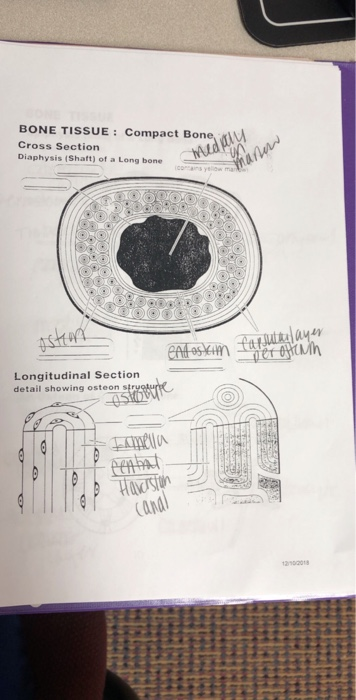 BONE TISSUE: Compact Bone
Cross Section
Diaphysis (Shaft) of a Long bone
marrow
(contains yellow marrow)
osteon
endosteum
layer
Longitudinal Section
detail showing osteon structure
lamella
central
Haversian
canal
12/10/2018